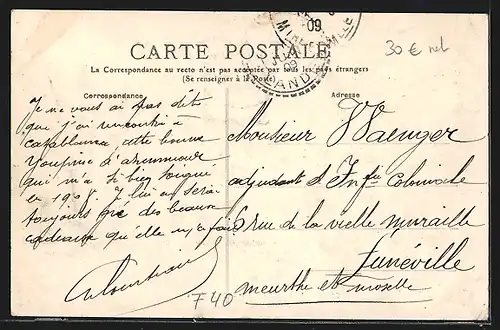 09
MIRA
30 € net
CARTE POSTALE
La Correspondance au recto n'est pas acceptée par tous les pays étrangers
(Se renseigner à la Poste)
Correspondance
Je ne vous ai pas dit
que j'ai rencontré à
casablanca, cette bonne
qui m'a si bien soigné
en 190 . Je lui en serai
toujours que des beaux
cadeaux qu'elle m'a fait
Adresse
Monsieur Waenger
adjudant d'Infie Coloniale
6 rue de la vielle muraille
Lunéville
meurthe et moselle
F40